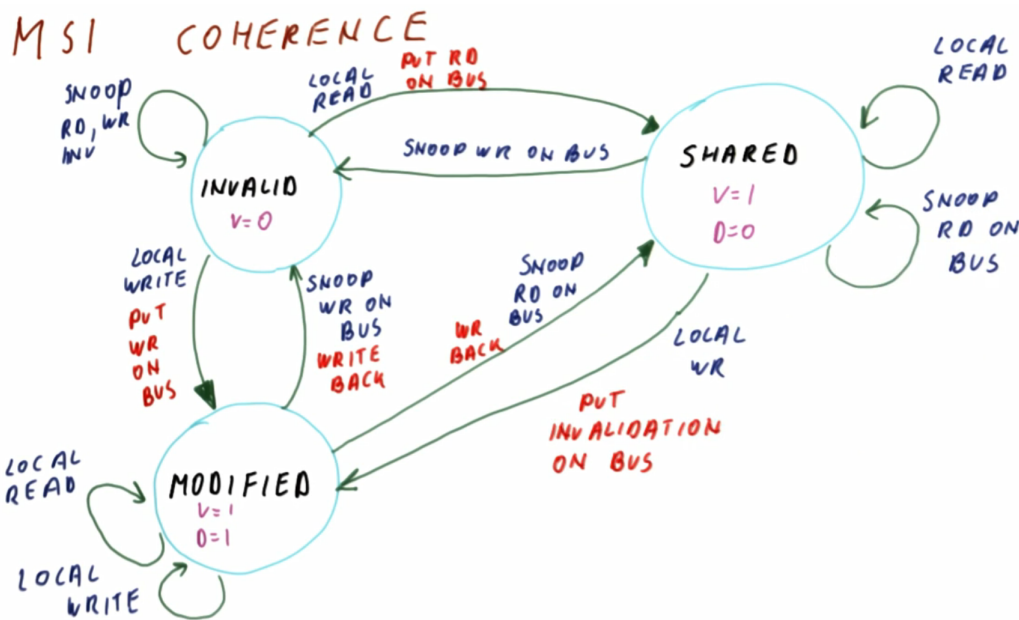 MSI COHERENCE
SNOOP
RD, WR
INV
LOCAL
READ
PUT RD
ON BUS
LOCAL
READ
INVALID
V=0
SNOOP WR ON BUS
SHARED
V=1
D=0
SNOOP
RD ON
BUS
LOCAL
WRITE
PUT
WR
ON
BUS
SNOOP
WR ON
BUS
WRITE
BACK
SNOOP
RD ON
BUS
WR
BACK
LOCAL
WR
PUT
INVALIDATION
ON BUS
MODIFIED
V=1
D=1
LOCAL
READ
LOCAL
WRITE